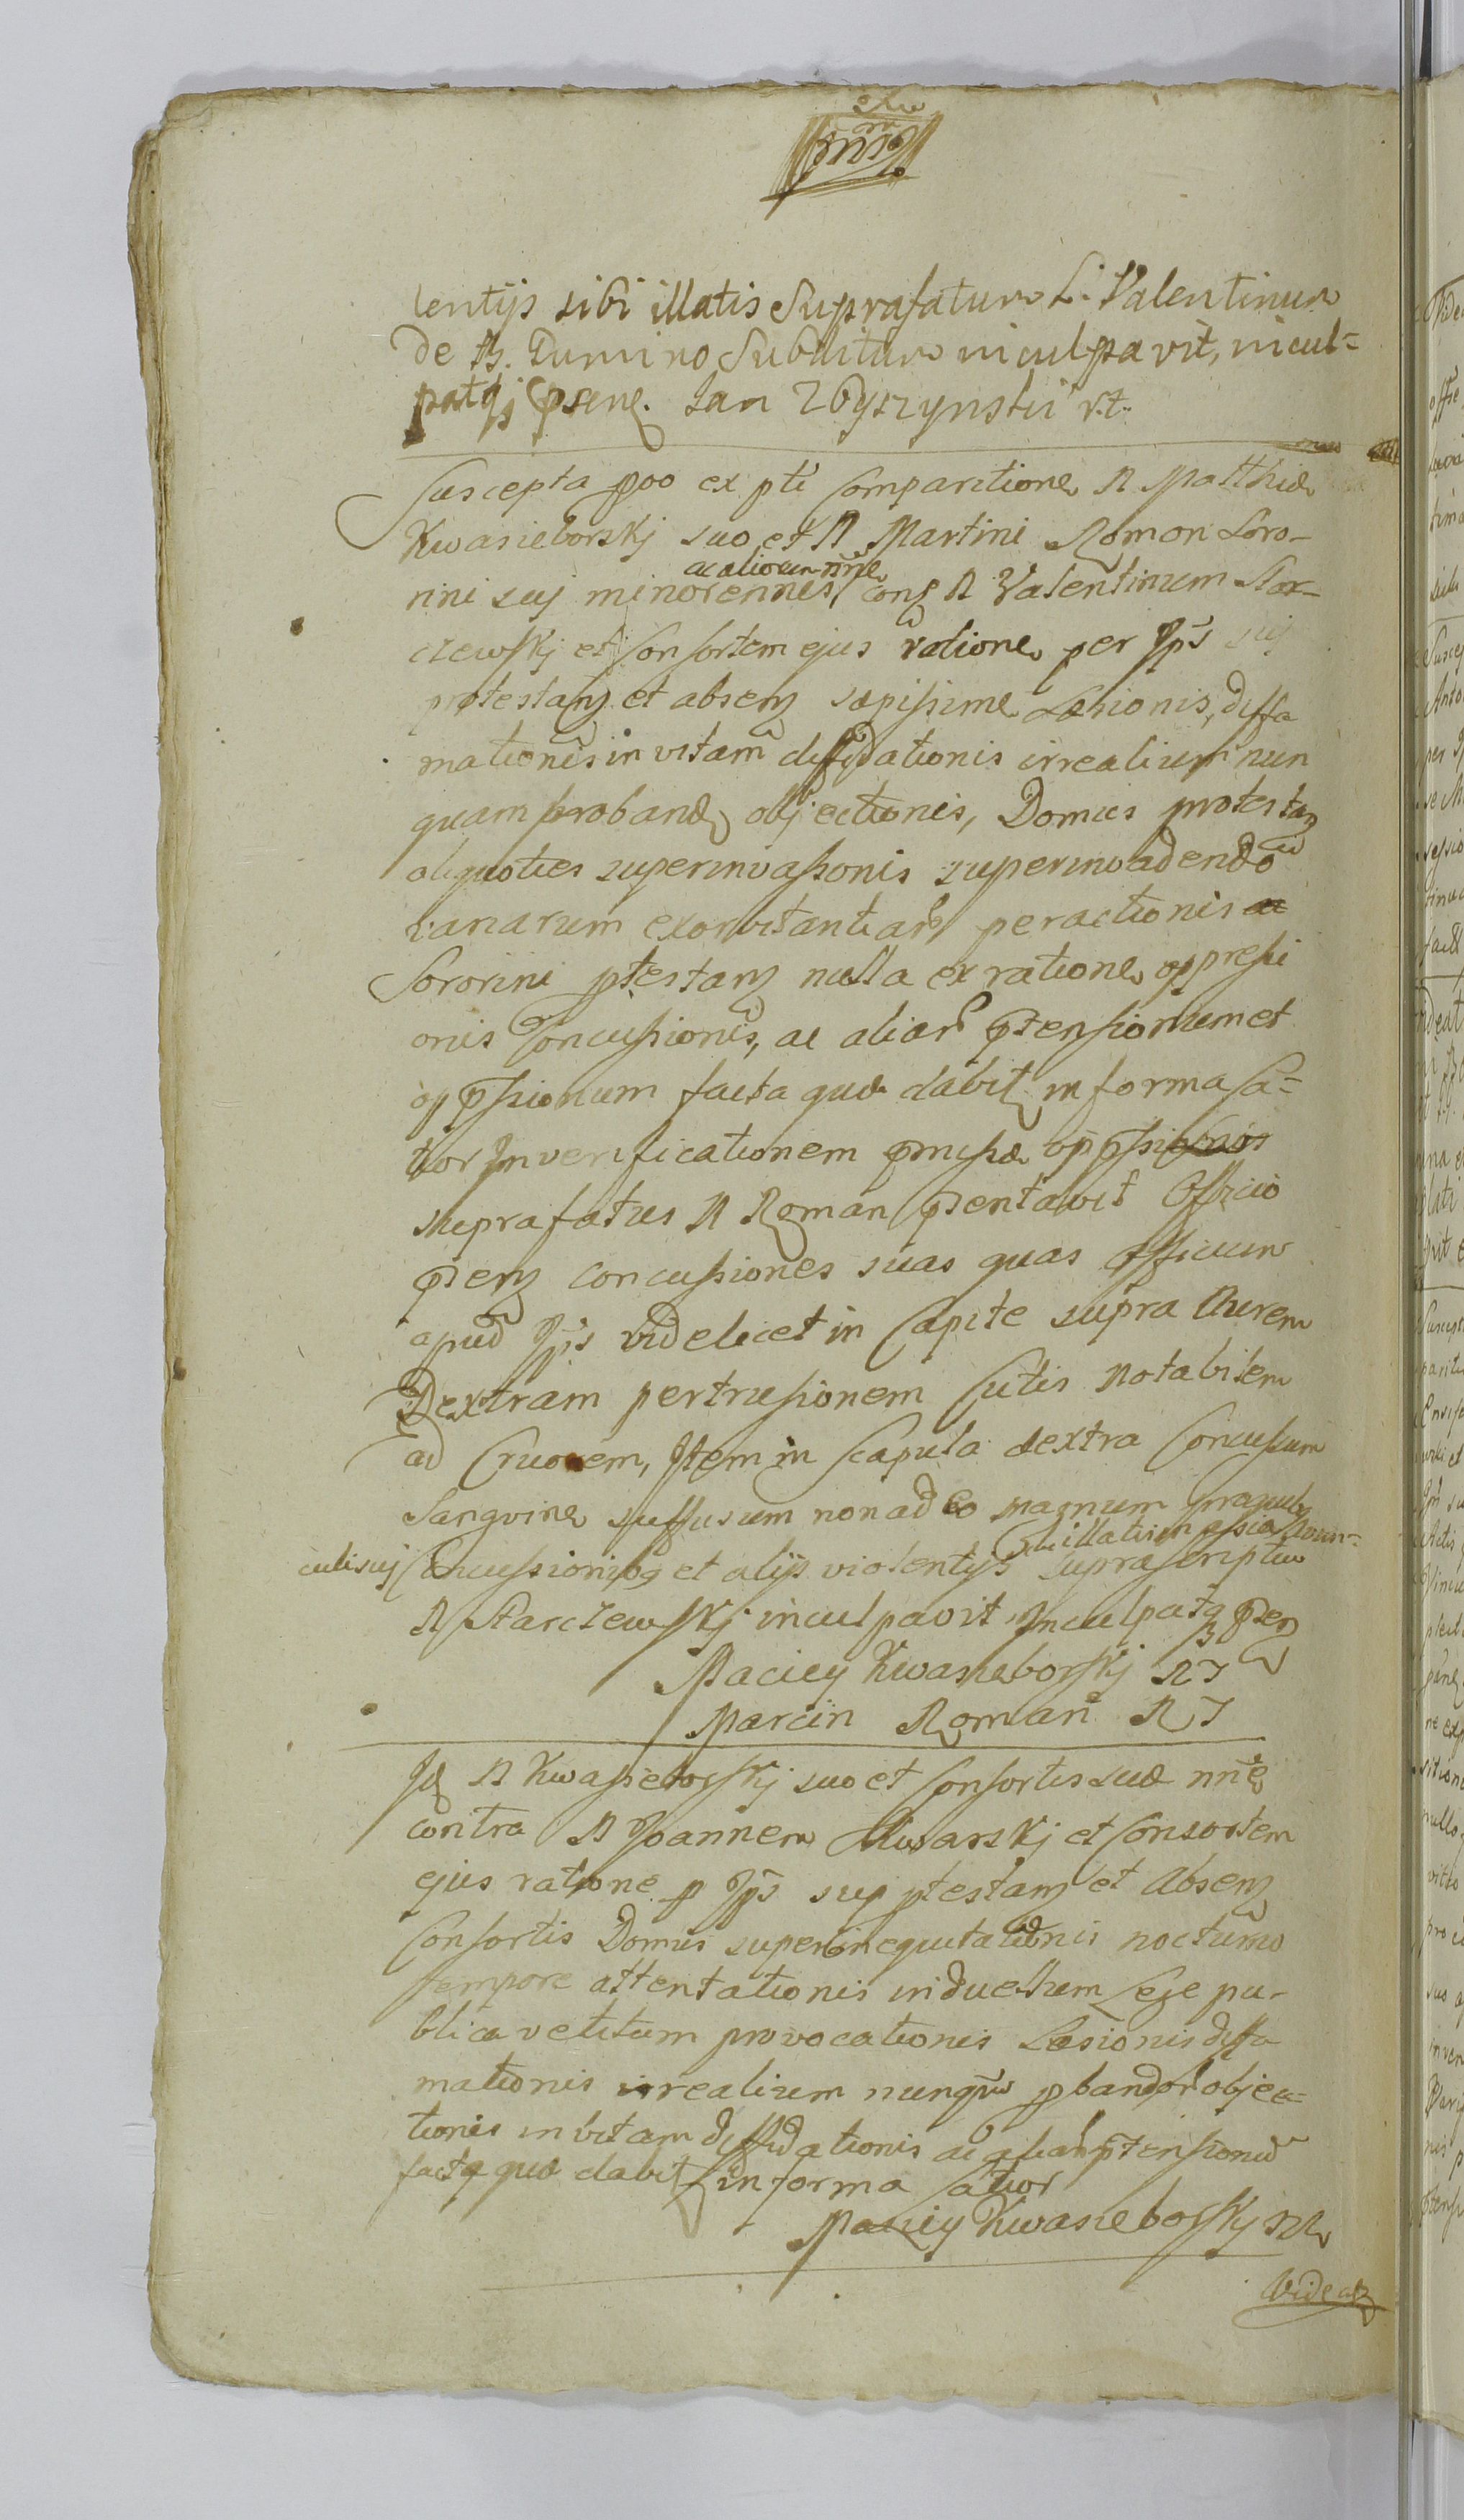 lentijs sibi illatis Suprafatum L. Valentinum
de Dunino Subditum inculpavit, incul-
patqj psenq. Jan Zbyszynski r.t.
Suscepta ptio ex pti Comparitione N Matthiæ
Kwasieborskj suo et N Martini Roman Soro-
ac aliorum nne
rini suj minorennes, cong N Valentinum Star-
czewskj et Consortem ejus ratione per Ipš suj
protestanz et absenz sæpissime Læsionis, diffa
mationis in vitam diffidationis irrealium nun
quam proband objectionis, Domus protestanz
aliquoties superinvasionis superinvadendo
variarum exorbitantiar peractionis ac
Sororini ptestanz nulla ex ratione oppressi
onis Concussionis, ac aliar ptensionum et
oppssionum facta quæ dabit in forma la-
tior In verificationem pmissæ oppssionis
suprafatus N Roman psentavit Officio
psenz concussiones suas quas Officium
apud Ipš videlicet in Capite supra Aurem
Dextram pertrusionem Cutis notabilem
ad Cruorem, Item in Scapula dextra Concussum
Sangvine suffusum non adeo magnum pro quibq
sibi illatis in assia Avun-
culi suj Concussionibq et alijs violentijs suprascriptum
N Starczewskj inculpavit Inculpatq psenz
Maciey Kwasieborskj NJ
Marcin Roman NJ
Id N Kwasieborskj suo et Consortis suæ nne
contra N Joannem Kwarskj et Consortem
ejus ratione p Ipš sup ptestanz et Absenz
Consortis Domus superinequitationis nocturno
tempore attentationis in duellum Lege pu-
blica vetitum provocationis Læsionis diffa
mationis irrealium nunqm pbandor objec-
tionis in vitam diffidationis ac aliar ptensionum
facta quæ dabit in forma latior
Maciey Kwasieborskj
Videat